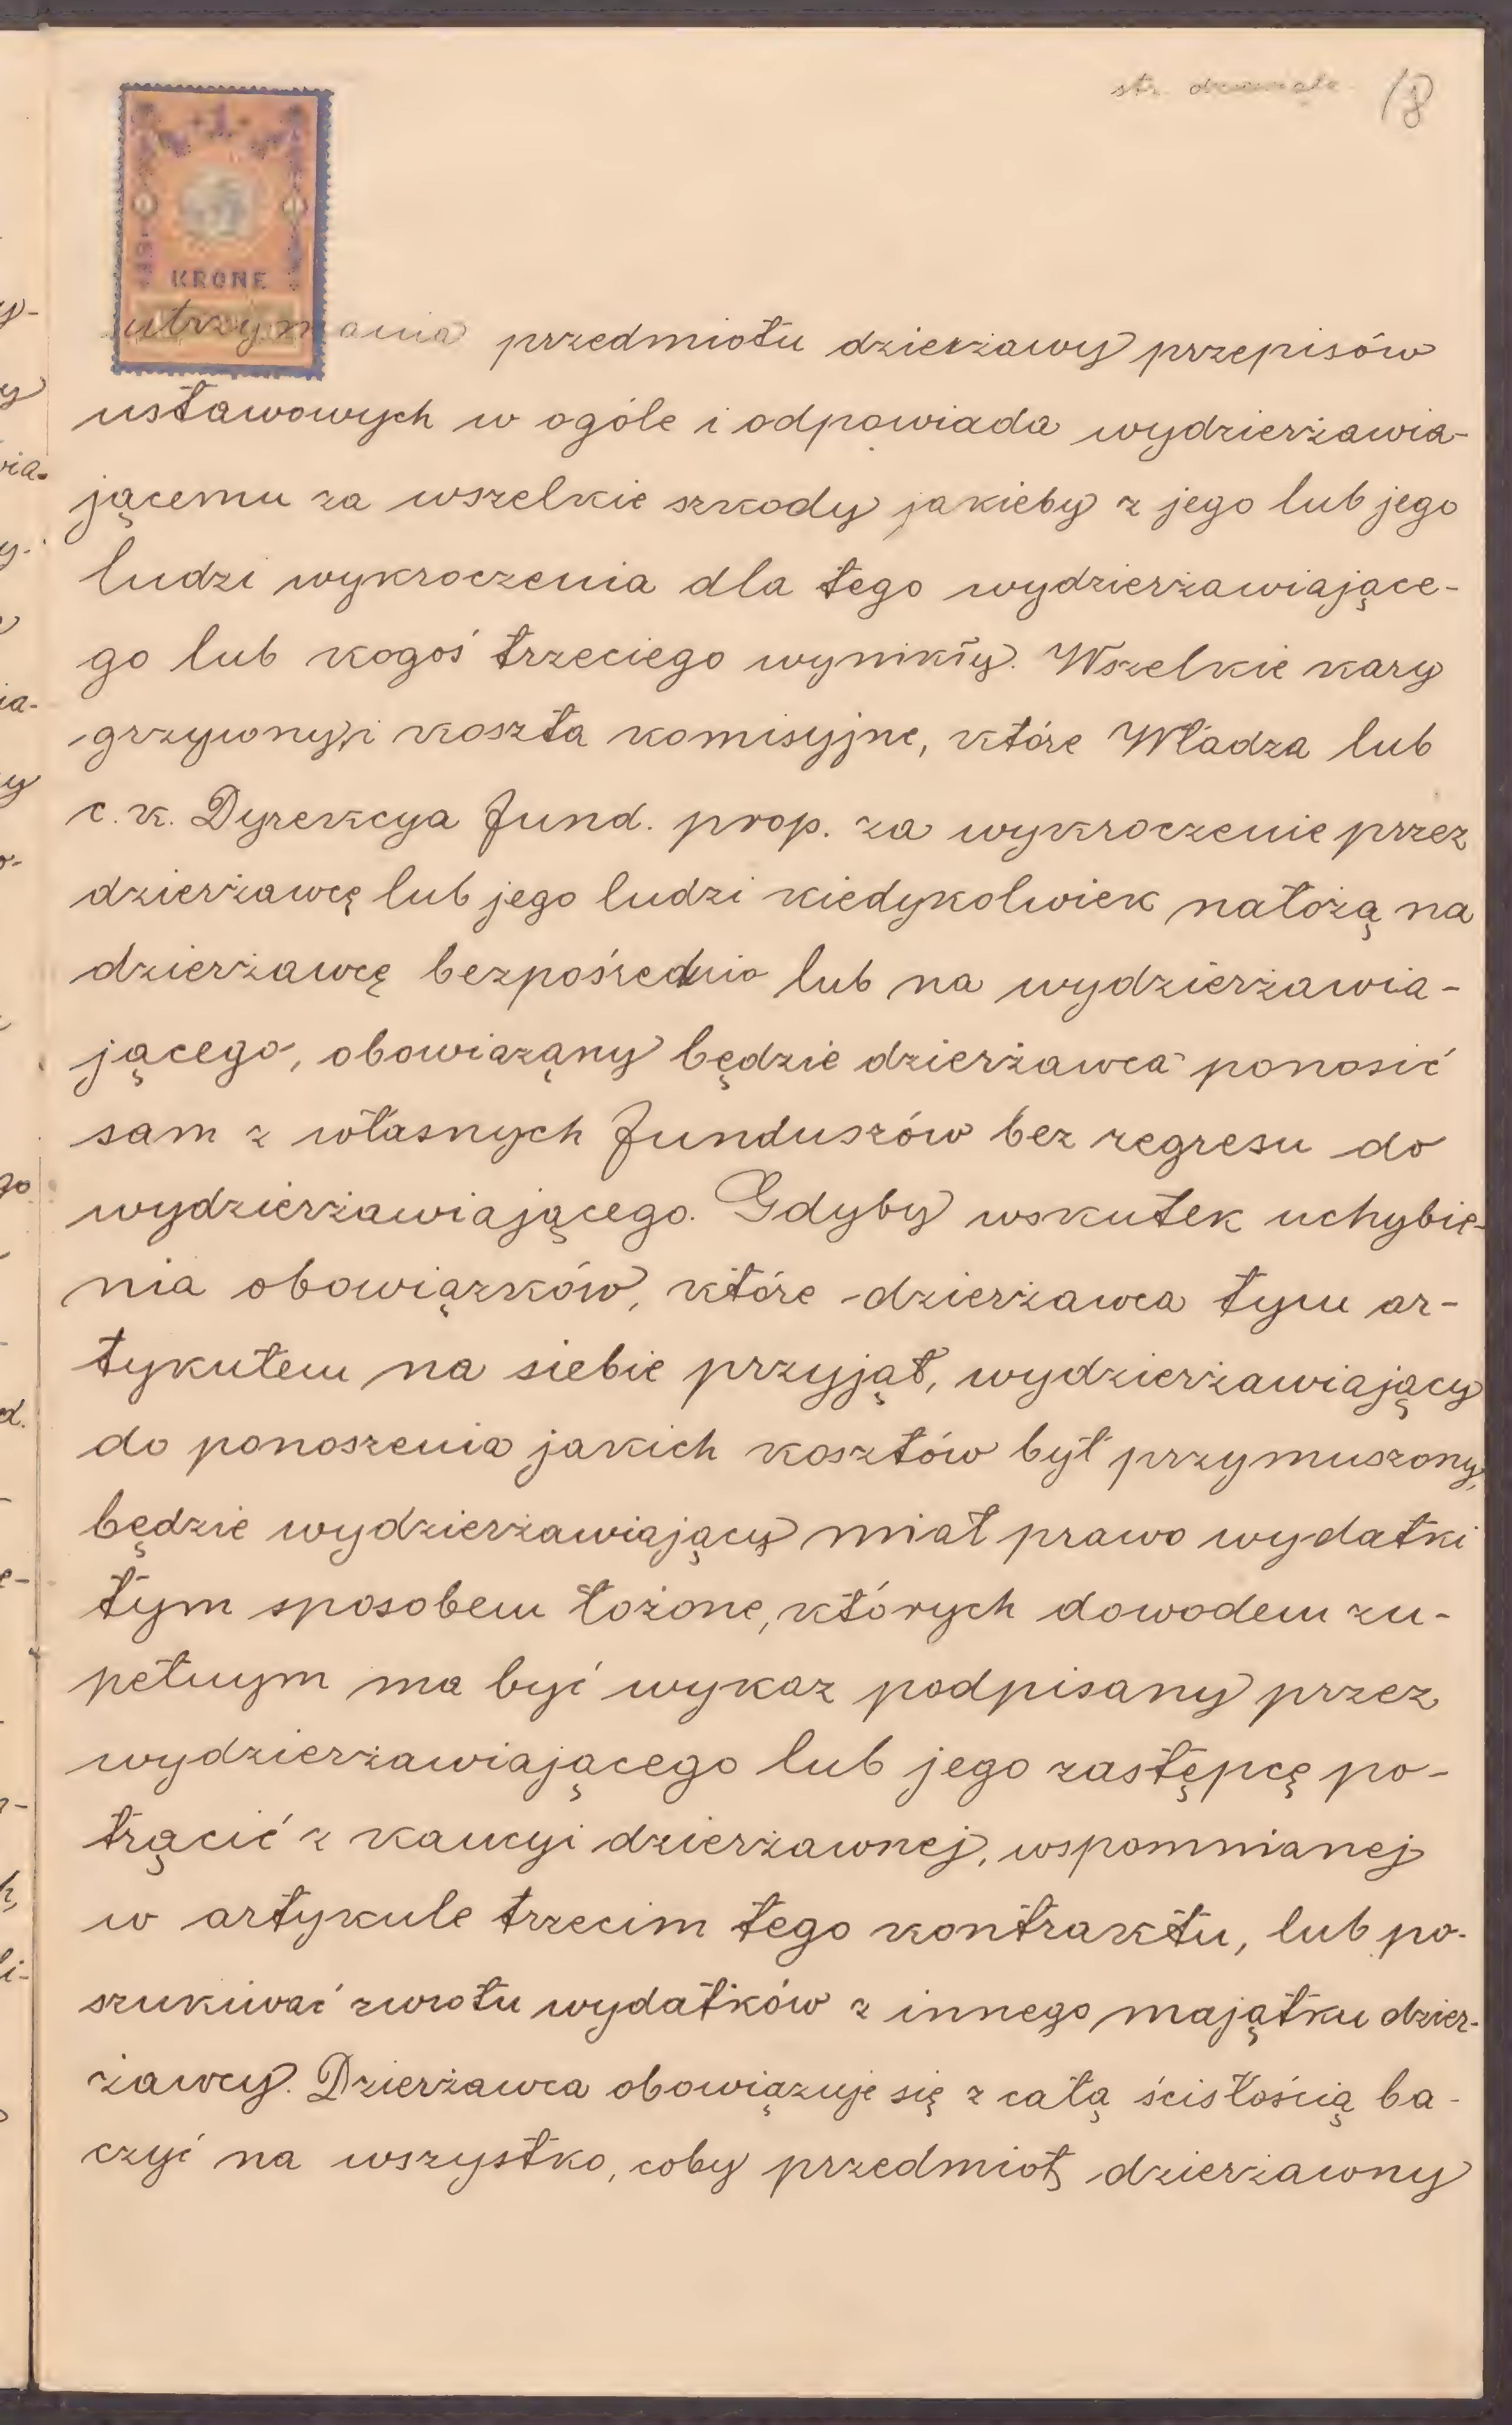 str. 18
1
KRONE
utrzymania przedmiotu dzierżawy przepisów
ustawowych w ogóle i odpowiada wydzierżawia-
jącemu za wszelkie szkody jakieby z jego lub jego
ludzi wykroczenia dla tego wydzierżawiające-
go lub kogoś trzeciego wynikły. Wszelkie kary
grzywny i koszta komisyjne, które Władza lub
c. k. Dyrekcya fund. prop. za wykroczenie przez
dzierżawcę lub jego ludzi kiedykolwiek nałożą na
dzierżawcę bezpośrednio lub na wydzierżawia-
jącego, obowiązany będzie dzierżawca ponosić
sam z własnych funduszów bez regresu do
wydzierżawiającego. Gdyby wskutek uchybie-
nia obowiązków, które dzierżawca tym ar-
tykułem na siebie przyjął, wydzierżawiający
do ponoszenia jakich kosztów był przymuszony,
będzie wydzierżawiający miał prawo wydatki
tym sposobem łożone, których dowodem zu-
pełnym ma być wykaz podpisany przez
wydzierżawiającego lub jego zastępcę po-
trącić z kaucyi dzierżawnej, wspomnianej
w artykule trzecim tego kontraktu, lub po-
szukiwać zwrotu wydatków z innego majątku dzier-
żawcy. Dzierżawca obowiązuje się z całą ścisłością ba-
czyć na wszystko, coby przedmiot dzierżawny